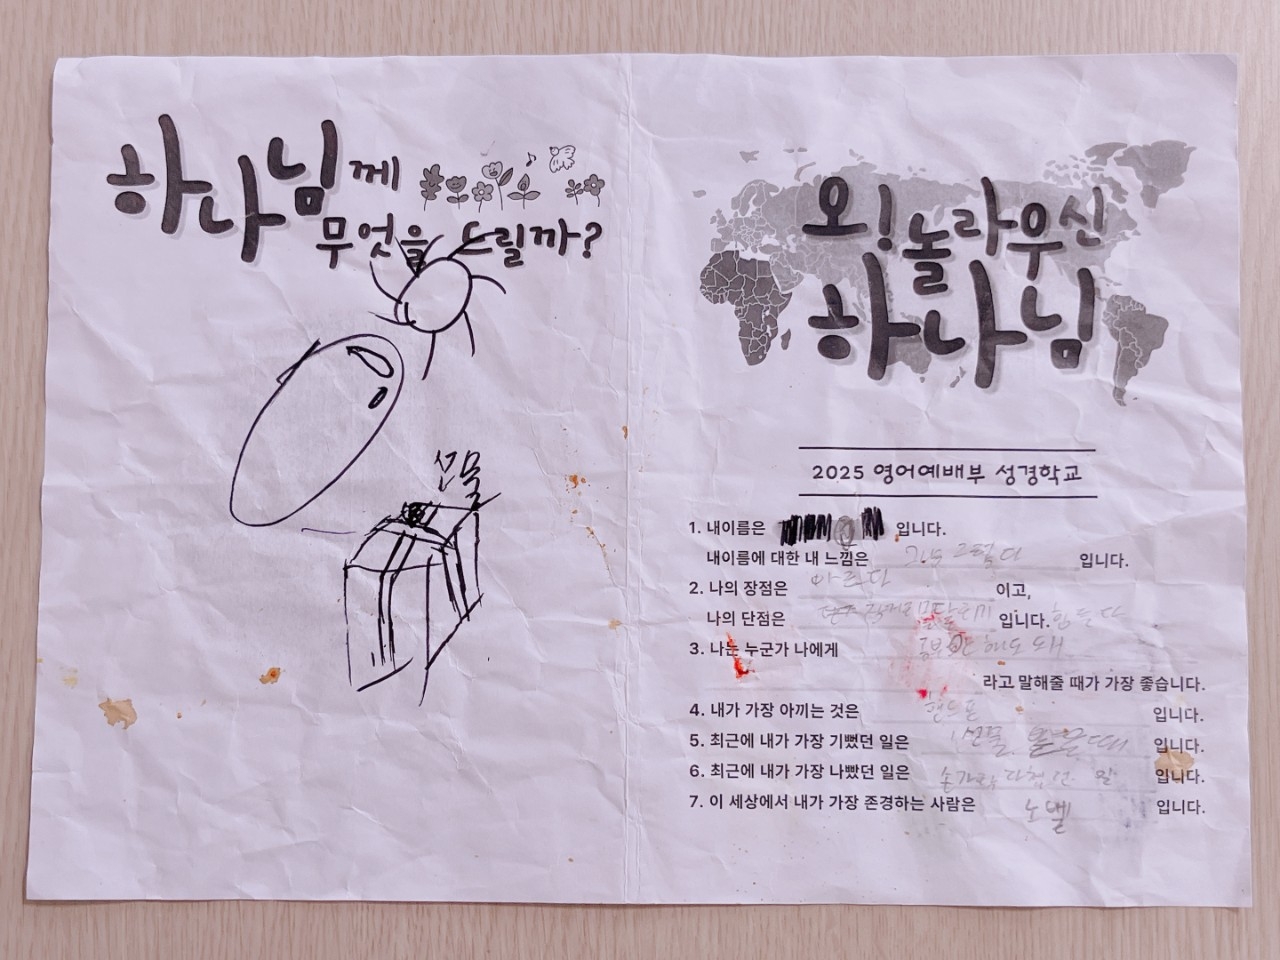 하나님께
무엇을 드릴까?
선물
오! 놀라우신
하나님
2025 영어예배부 성경학교
1. 내이름은 입니다.
내이름에 대한 내 느낌은 그냥 그렇다 입니다.
2. 나의 장점은 이고,
나의 단점은 입니다. 힘들다
3. 나는 누군가 나에게 공부 안 해도 돼
라고 말해줄 때가 가장 좋습니다.
4. 내가 가장 아끼는 것은 핸드폰 입니다.
5. 최근에 내가 가장 기뻤던 일은 선물 받을 때 입니다.
6. 최근에 내가 가장 나빴던 일은 손가락 다쳤던 일 입니다.
7. 이 세상에서 내가 가장 존경하는 사람은 노벨 입니다.